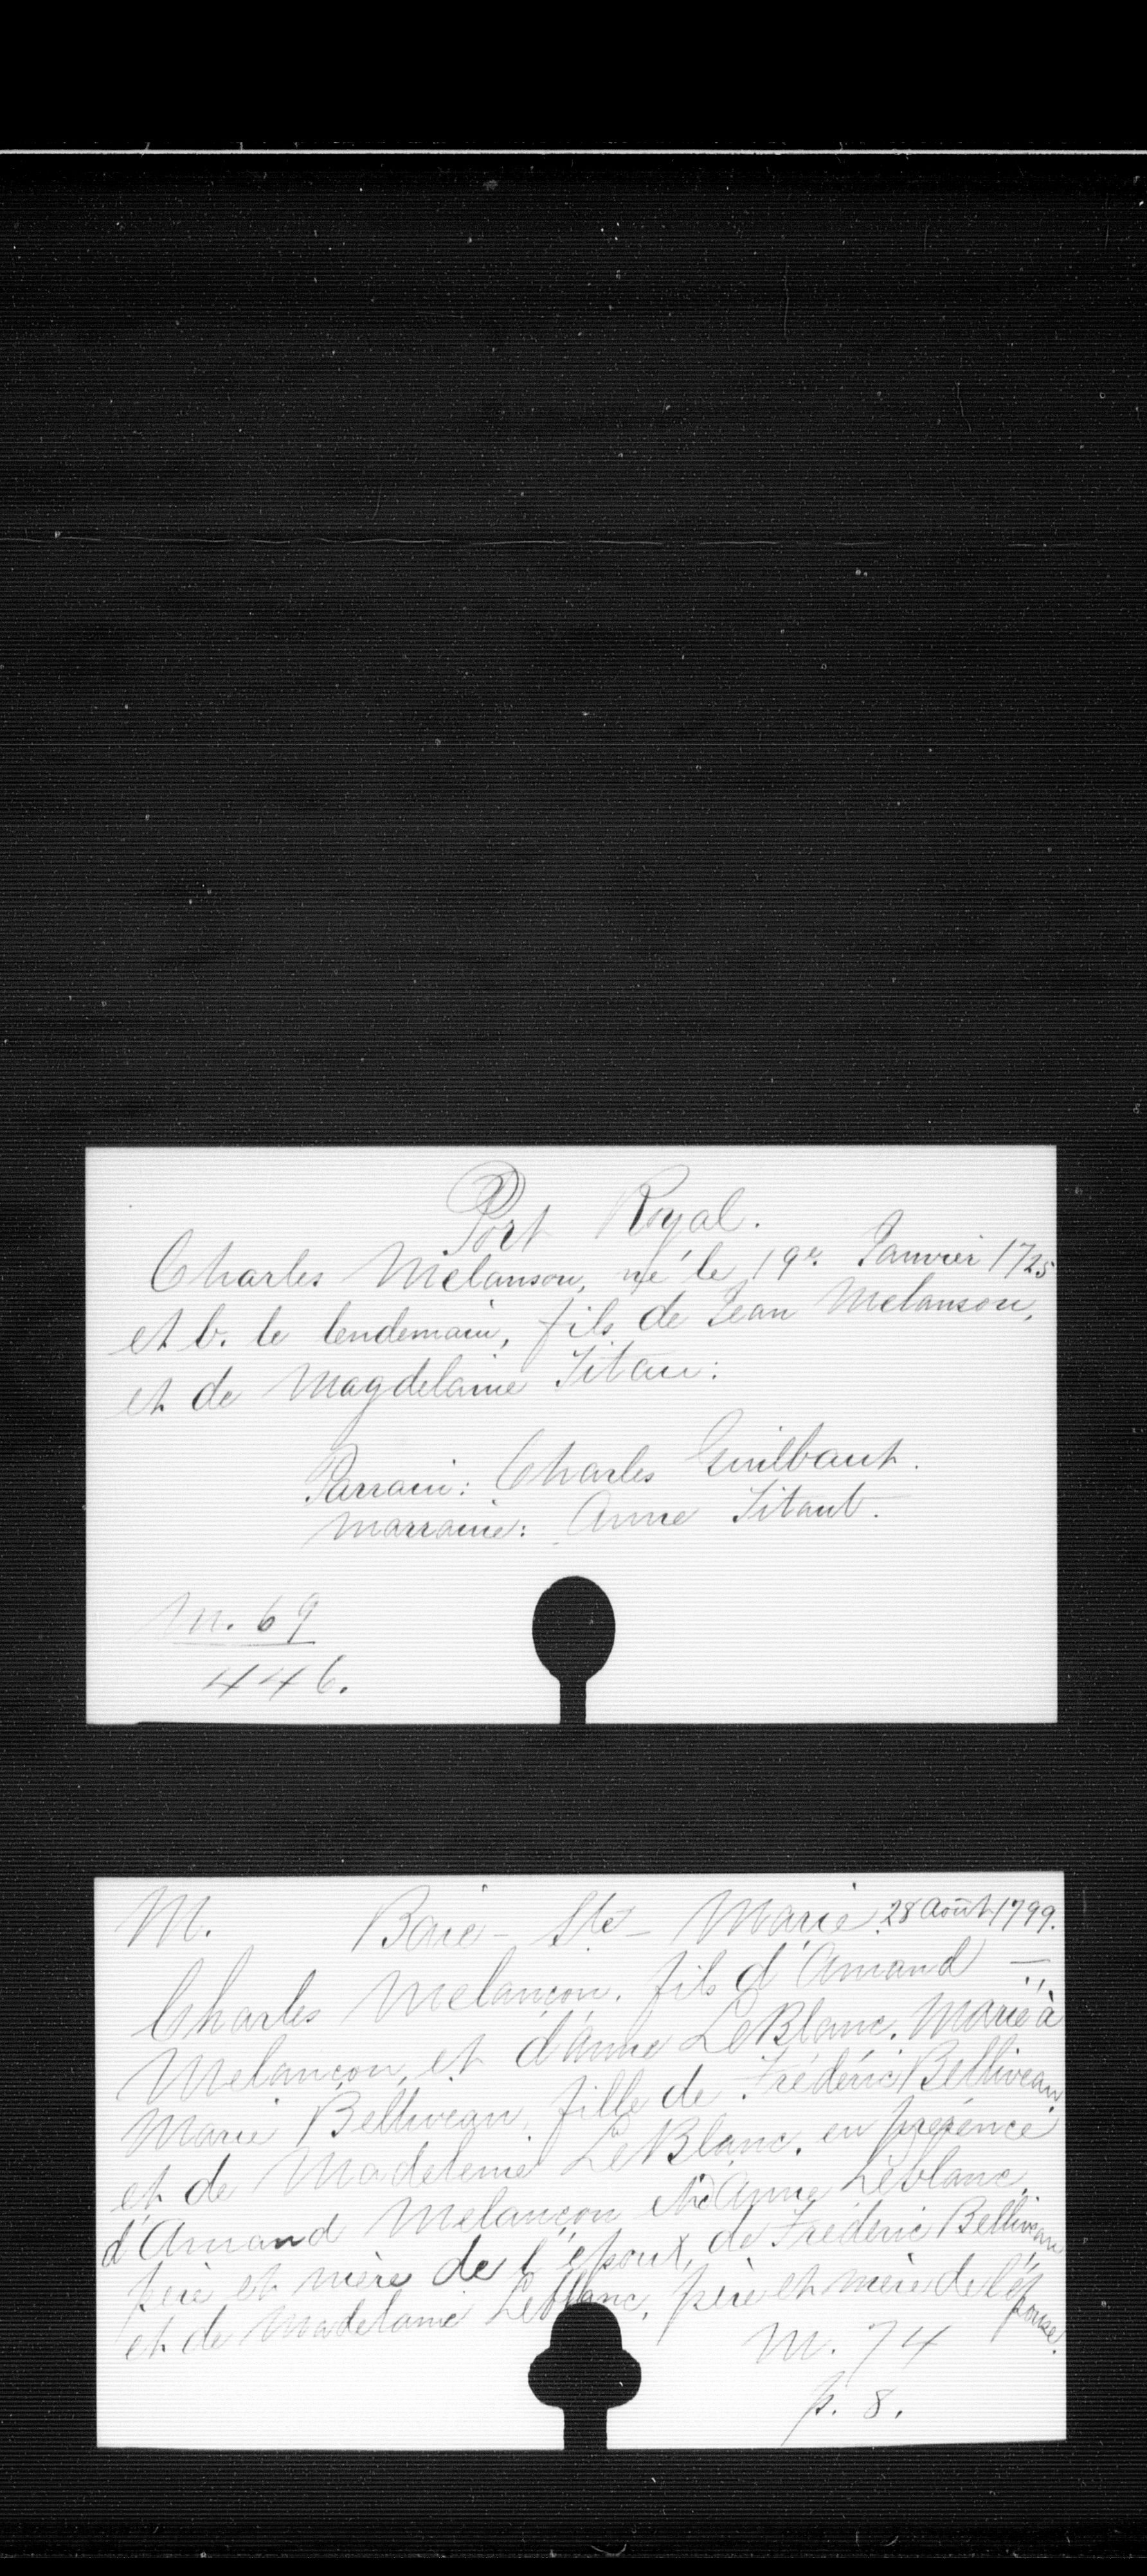 Port Royal.
Charles Melanson, né le 19e Janvier 1725
et b. le lendemain, fils de Jean Melanson,
et de Magdelaine Titau:
Parrain: Charles Guilbaut.
Marraine: Anne Titaut.
M. 69
446.
M. Baie-Ste-Marie 28 Août 1799.
Charles Melançon, fils d'Amand —
Melançon, et d'Anne LeBlanc. Marié à
Marie Belliveau, fille de Frédéric Belliveau,
et de Madeleine LeBlanc, en présence
d'Amand Melançon et Anne Leblanc,
père et mère de l'époux, de Frédéric Belliveau
et de Madelaine Leblanc, père et mère de l'épouse.
M. 74
p. 8.